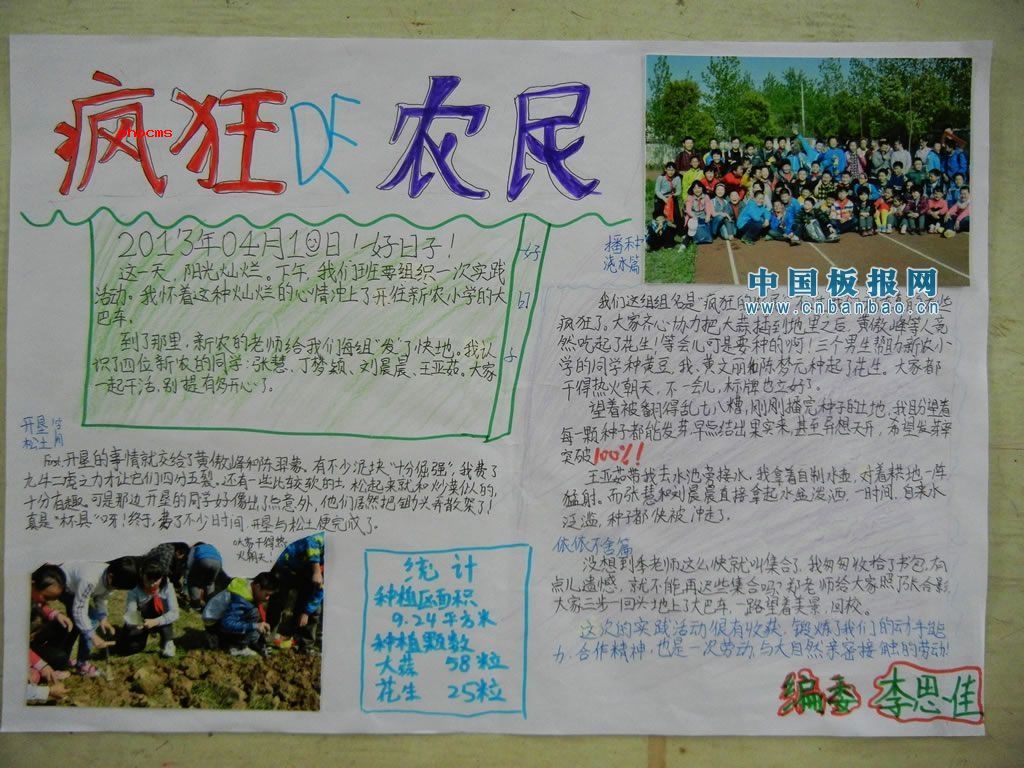 疯狂DE农民
hbcms
2013年04月10日!好日子!
这一天,阳光灿烂。下午,我们班要组织一次实践
活动。我怀着这种灿烂的心情冲上了开往新农小学的大
巴车。
到了那里,新农的老师给我们每组"发"了快地。我认
识了四位新农的同学:张慧、丁梦颖、刘晨晨、王亚茹。大家
一起干活,别提有多开心了。
好
日
子
开垦
松土
First,开垦的事情就交给了黄傲峰和陈羿豪。有不少泥块"十分倔强",我费了
九牛二虎之力才让它们四分五裂。还有一些比较软的土松起来就和炒菜似的,
十分有趣。可是那边开垦的同学好像出了点意外,他们居然把锄头弄散架了!
真是"杯具"呀!终于,费了不少日时间,开垦与松土便完成了。
大家干得热
火朝天!
统计
种植区面积
9.24平方米
种植颗数
大蒜 58粒
花生 25粒
播种
浇水篇
中国板报网
www.cnbanbao.cn
我们这组组名是"疯狂的
疯狂了。大家齐心协力把大蒜插到地里之后,黄傲峰等人竟
然吃起了花生!等会儿可是要种的啊!三个男生帮助新农小
学的同学种黄豆,我、黄文丽和陈梦元种起了花生。大家都
干得热火朝天,不一会儿,标牌也立好了。
望着被翻得乱七八糟,刚刚播完种子的土地,我盼望着
每一颗种子都能发芽早点结出果实来,甚至异想天开,希望发芽率
突破100%!
王亚茹带我去水池旁接水,我拿着自制水壶,对着耕地一阵
猛射。而张慧和刘晨晨直接拿起水盆泼洒,一时间,自来水
泛滥,种子都快被冲走了。
依依不舍篇
没想到季老师这么快就叫集合了,我匆匆收拾了书包,有
点儿遗憾,就不能再迟些集合吗?郑老师给大家照了张合影,
大家三步一回头地上了大巴车,一路望着美景,回校。
这次的实践活动很有收获,锻炼了我们的动手能
力、合作精神,也是一次劳动,与大自然亲密接触的劳动!
编委 李思佳